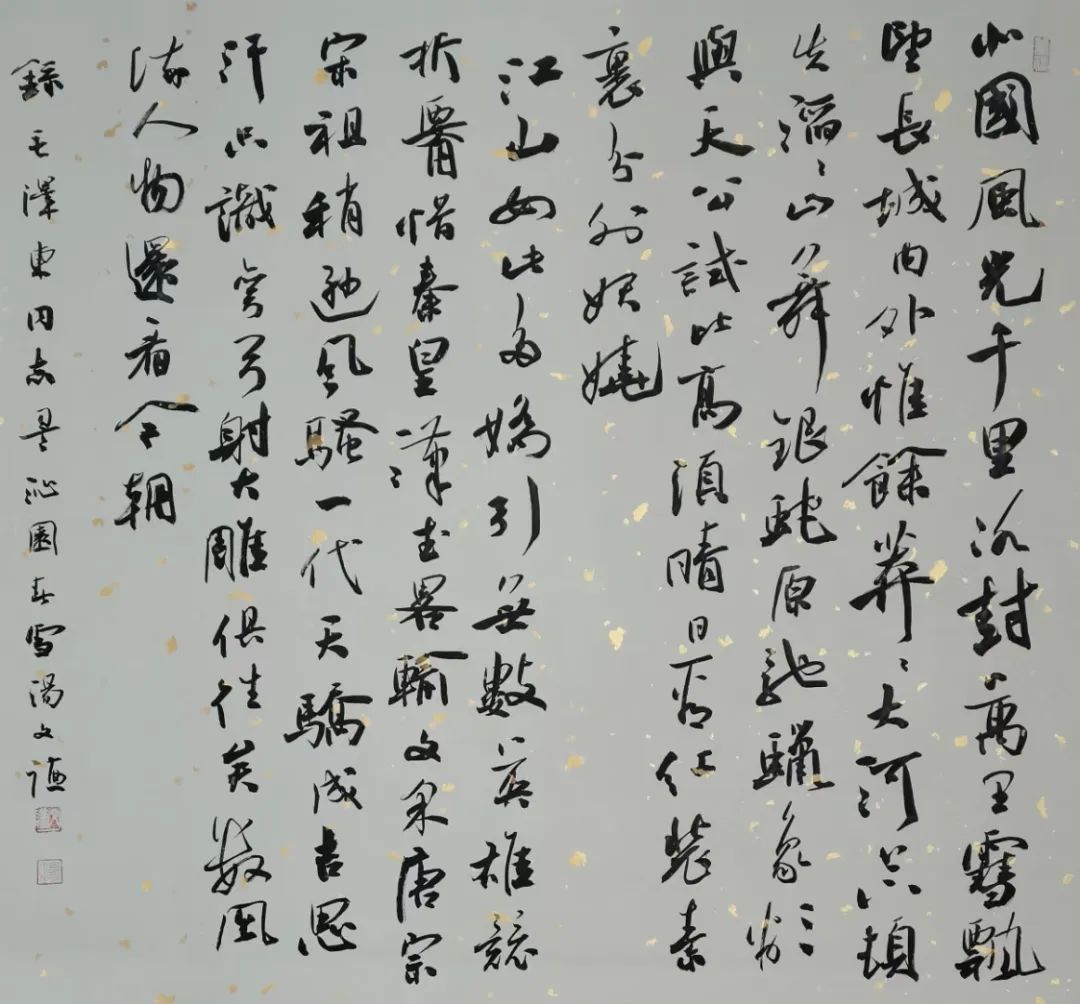 北國風光千里冰封萬里雪飄
望長城内外惟餘莽〻大河上下頓
失滔〻山舞銀蛇原馳蠟象欲
與天公試比高須晴日看紅裝素
裹分外妖嬈
江山如此多嬌引無數英雄競
折腰惜秦皇漢武畧輸文采唐宗
宋祖稍遜風騷一代天驕成吉思
汗只識彎弓射大雕俱往矣數風
流人物還看今朝
錄毛澤東同志詞沁園春雪湯文